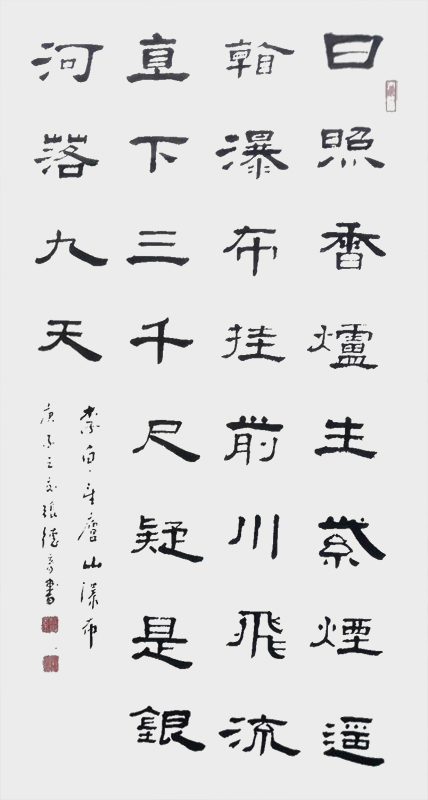 日照香爐生紫煙遙
看瀑布挂前川飛流
直下三千尺疑是銀
河落九天
李白望廬山瀑布
庚子之張德書